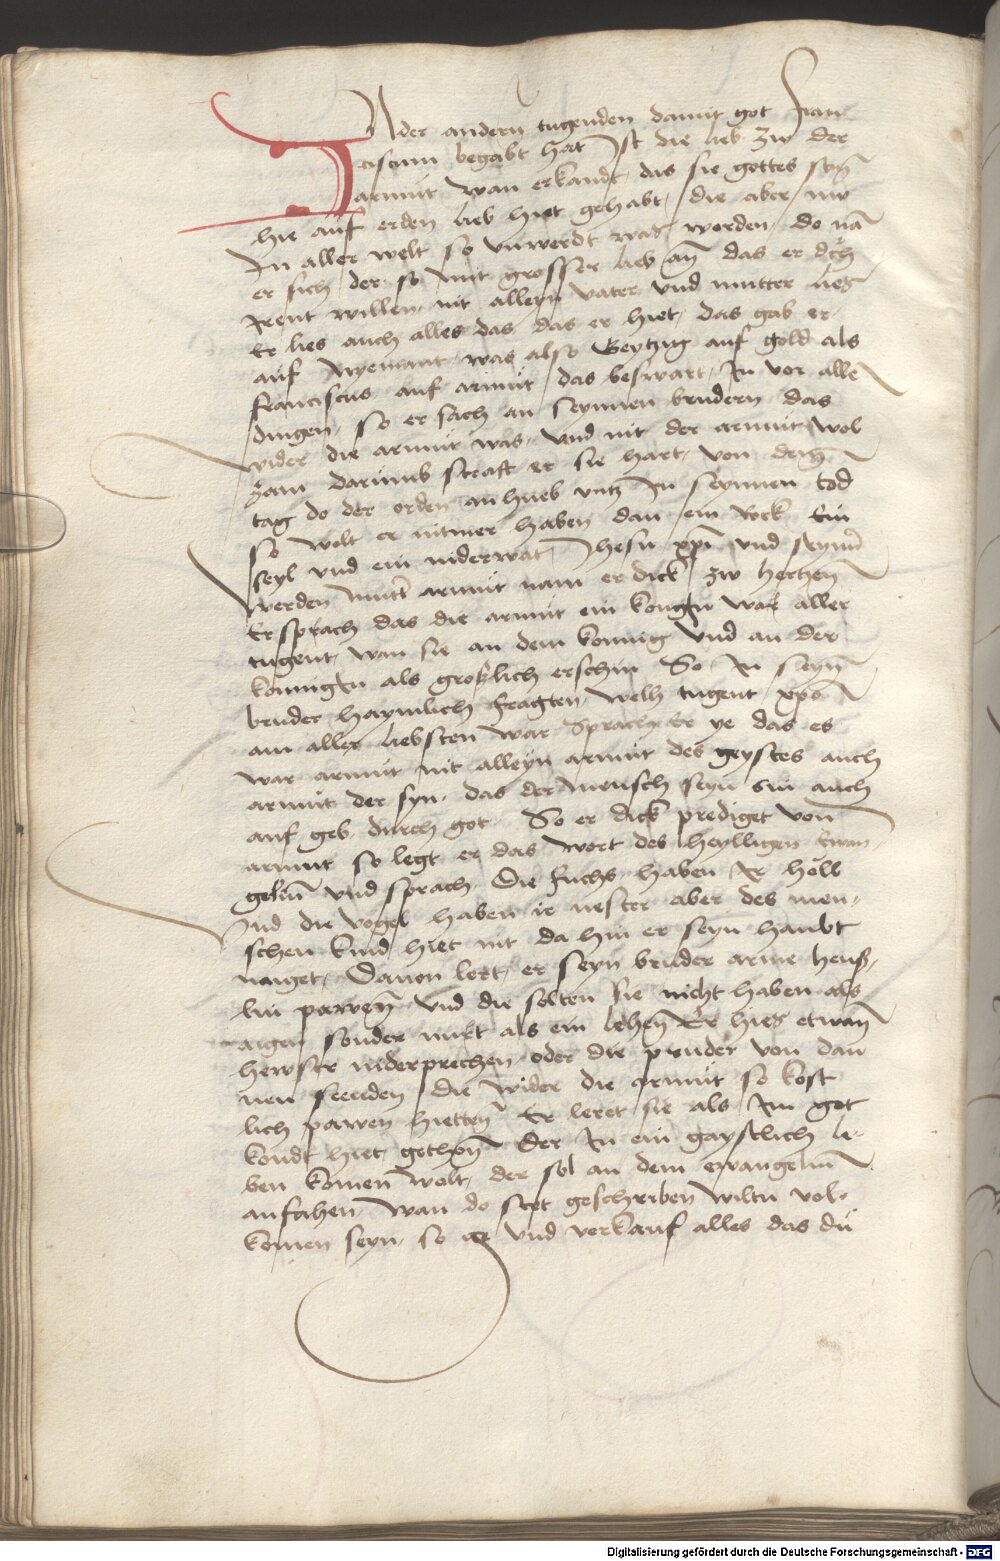 IN der andern tugenden damit got Fran
ciscum begabt hat Ist die lieb zw der
armut wan erkandt das sie gottes sun
hie auf erden lieb hiet gehabt, die aber nw
In aller welt so vnwerdt was worden, do nā
er sich der so mit grosser lieb an das er dch
Irent willen nit alleyn vater vnd mutter lies
Er lies auch alles das das er hiet, das gab er
auf Nyemant was also Geytzig auf gold als
franciscus auf armut, das beswart In vor allē
dingen, so er sach an seynnen brudern das
wider die armut was, vnd nit der armut wol
zam darumb straft er sie hart, von dem
tag do der orden anhueb vntz In seynnen tod
so wolt er nitmer haben dan ein Rock Ein
seyl vnd ein niderwat Jhesu xpī vnd seynn
werden mutt armut nam er dick zw hertzen
Er sprach das die armut ein kongin war aller
tugent, wan sie an dem konnig vnd an der
konnigin als groslich erschin So In seyn
bruder haymlich fragten welh tugent xpō
am aller liebsten war Sprach er ye das es
war armut nit alleyn armut des geystes auch
armut der syn, das der mensch seyn sin auch
auf geb durch got So er dick prediget von
armut so legt er das wort des heylligen Ewan
gelim vnd sprach, Die fuchs haben Ir hoell
Vnd die vogel haben ir nester aber des men-
schen kind hiet nit da hin er seyn haubt
naiget, Dauon lert er seyn bruder arme heuß
lin pawen vnd die solten sie nicht haben als
aigen sonder nurt als ein lehen Er hies etwan
hewser niderprechen oder die pruder von dan
nen senden die wider die armut so kost
lich pawen hietten Er leret sie als Im got
kondt hiet gethon Der In ein gaystlich le-
ben komen wolt, der sol an dem ewangelim
anfahen wan do stet geschriben wiltu vol
komen seyn, so ge vnd verkauf alles das dü
Digitalisierung gefördert durch die Deutsche Forschungsgemeinschaft - DFG